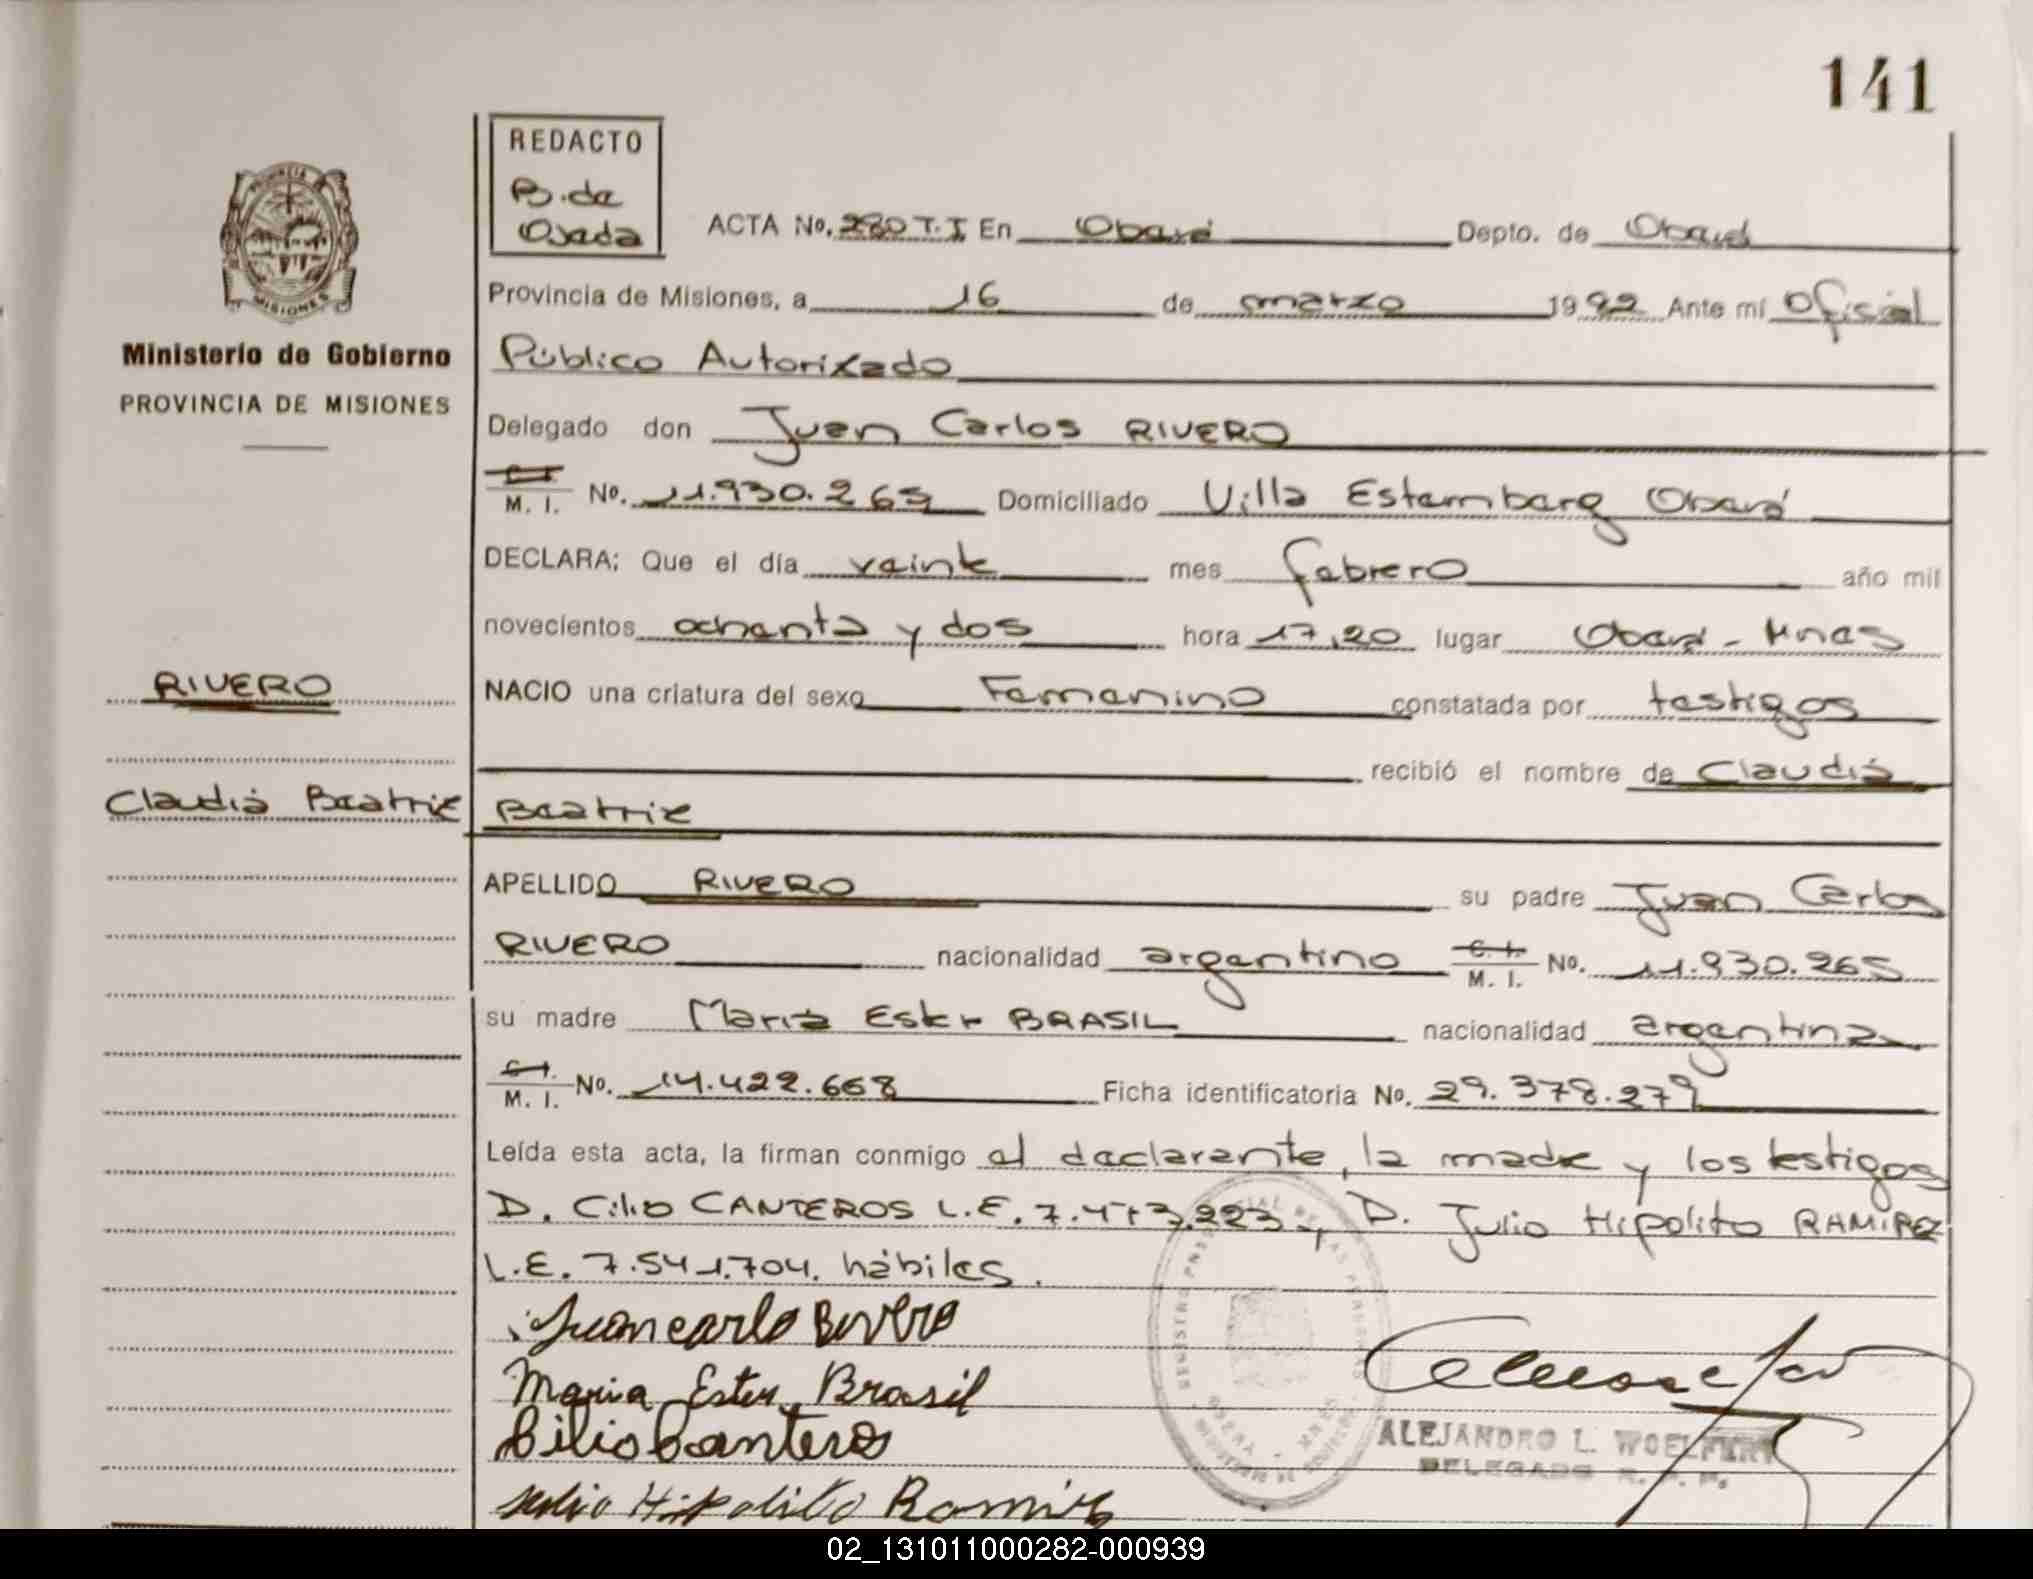 141
REDACTO
B. de
Ojeda
ACTA No. 280 T. I En Oberá Depto. de Oberá
Provincia de Misiones, a 16 de marzo 1982 Ante mí Oficial
Ministerio de Gobierno
Público Autorizado
PROVINCIA DE MISIONES
Delegado don Juan Carlos RIVERO
C. I.
M. I. No. 11.930.265 Domiciliado Villa Estemberg Oberá
DECLARA: Que el día veinte mes febrero año mil
novecientos ochenta y dos hora 17,20 lugar Oberá - Mnes
RIVERO
NACIO una criatura del sexo Femenino constatada por testigos
recibió el nombre de Claudia
Claudia Beatriz
Beatriz
APELLIDO RIVERO su padre Juan Carlos
RIVERO nacionalidad argentino C. I. M. I. No. 11.930.265
su madre María Ester BRASIL nacionalidad argentina
C. I.
M. I. No. 14.422.668 Ficha identificatoria No. 29.378.279
Leída esta acta, la firman conmigo el declarante, la madre y los testigos
D. Cilio CANTEROS L.E. 7.473.223, D. Julio Hipolito RAMIREZ
L.E. 7.541.704. hábiles.
Juan carlo Rivero
Maria Ester Brasil
Cilio Canteros
Julio Hipolito Ramirez
ALEJANDRO L. WOELFERT
DELEGADO R. P. P.
02_131011000282-000939